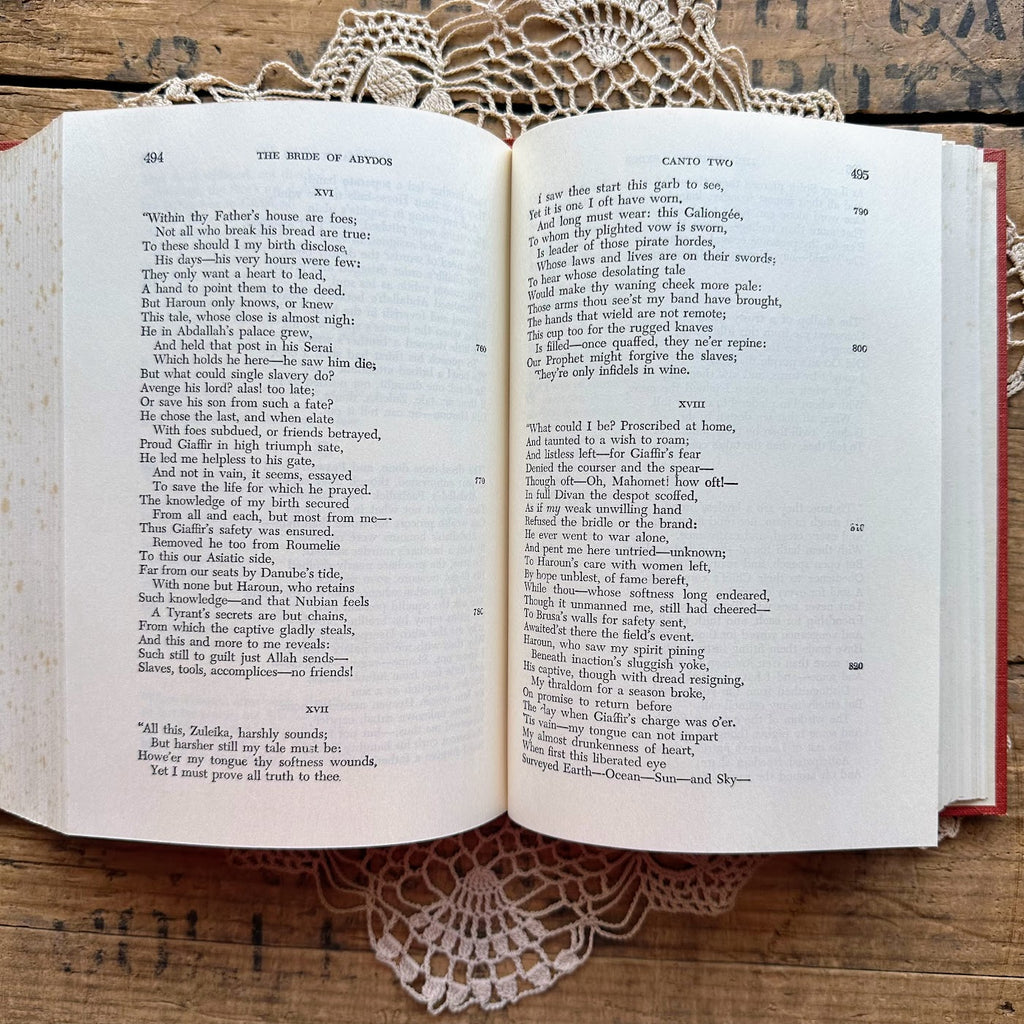 494
THE BRIDE OF ABYDOS
XVI
"Within thy Father's house are foes;
Not all who break his bread are true:
To these should I my birth disclose,
His days—his very hours were few:
They only want a heart to lead,
A hand to point them to the deed.
But Haroun only knows, or knew
This tale, whose close is almost nigh:
He in Abdallah's palace grew,
And held that post in his Serai
760
Which holds he here—he saw him die;
But what could single slavery do?
Avenge his lord? alas! too late;
Or save his son from such a fate?
He chose the last, and when elate
With foes subdued, or friends betrayed,
Proud Giaffir in high triumph sate,
He led me helpless to his gate,
And not in vain, it seems, essayed
770
To save the life for which he prayed.
The knowledge of my birth secured
From all and each, but most from me—
Thus Giaffir's safety was ensured.
Removed he too from Roumelie
To this our Asiatic side,
Far from our seats by Danube's tide,
With none but Haroun, who retains
Such knowledge—and that Nubian feels
A Tyrant's secrets are but chains,
780
From which the captive gladly steals,
And this and more to me reveals:
Such still to guilt just Allah sends—
Slaves, tools, accomplices—no friends!
XVII
"All this, Zuleika, harshly sounds;
But harsher still my tale must be:
Howe'er my tongue thy softness wounds,
Yet I must prove all truth to thee.
CANTO TWO
495
I saw thee start this garb to see,
Yet it is one I oft have worn,
790
And long must wear: this Galiongée,
To whom thy plighted vow is sworn,
Is leader of those pirate hordes,
Whose laws and lives are on their swords;
To hear whose desolating tale
Would make thy waning cheek more pale:
Those arms thou see'st my band have brought,
The hands that wield are not remote;
This cup too for the rugged knaves
Is filled—once quaffed, they ne'er repine:
800
Our Prophet might forgive the slaves;
They're only infidels in wine.
XVIII
"What could I be? Proscribed at home,
And taunted to a wish to roam;
And listless left—for Giaffir's fear
Denied the courser and the spear—
Though oft—Oh, Mahomet! how oft!—
In full Divan the despot scoffed,
As if my weak unwilling hand
Refused the bridle or the brand:
810
He ever went to war alone,
And pent me here untried—unknown;
To Haroun's care with women left,
By hope unblest, of fame bereft,
While thou—whose softness long endeared,
Though it unmanned me, still had cheered—
To Brusa's walls for safety sent,
Awaited'st there the field's event.
Haroun, who saw my spirit pining
Beneath inaction's sluggish yoke,
820
His captive, though with dread resigning,
My thraldom for a season broke,
On promise to return before
The day when Giaffir's charge was o'er.
'Tis vain—my tongue can not impart
My almost drunkenness of heart,
When first this liberated eye
Surveyed Earth—Ocean—Sun—and Sky—